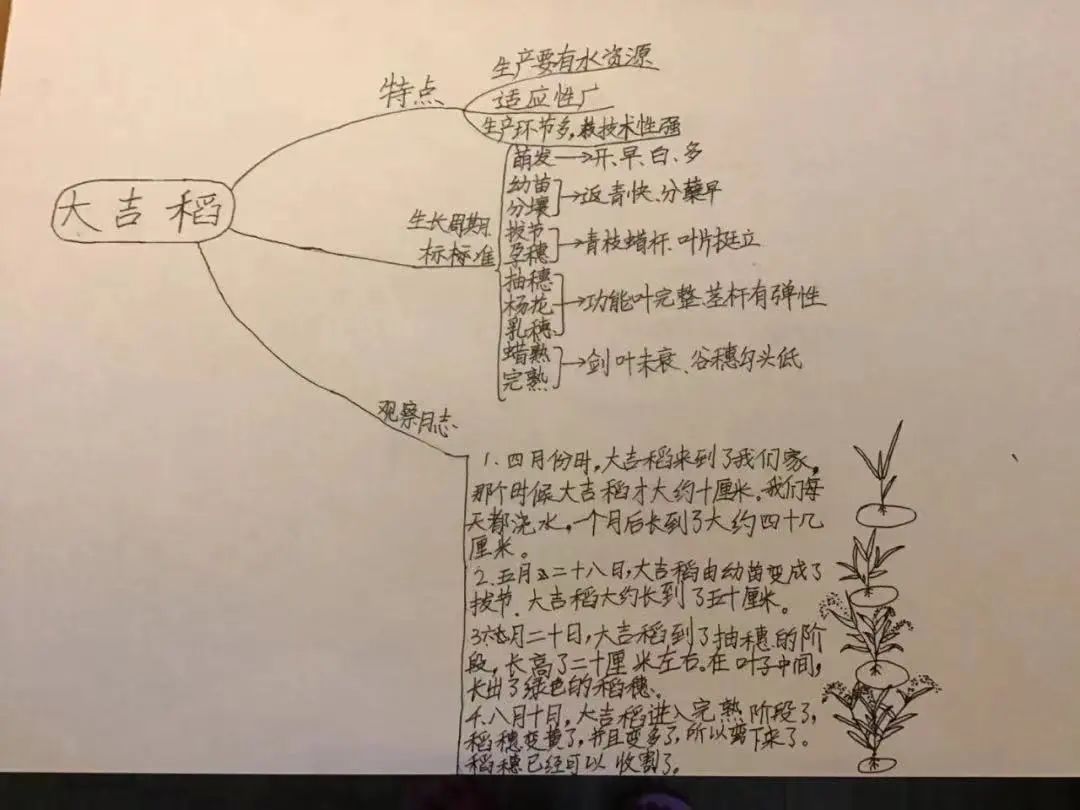 大吉稻
特点
生产要有水资源
适应性广
生产环节多,技术性强
生长周期
标标准
萌发→开、早、白、多
幼苗
分壤
→返青快、分蘖早
拔节
孕穗
→青枝蜡杆、叶片挺立
抽穗
杨花
乳穗
→功能叶完整、茎杆有弹性
蜡熟
完熟
→剑叶未衰、谷穗勾头低
观察日志
1.四月份时,大吉稻来到了我们家,
那个时候大吉稻才大约十厘米。我们每
天都浇水,一个月后长到了大约四十几
厘米。
2.五月二十八日,大吉稻由幼苗变成了
拔节,大吉稻大约长到了五十厘米。
3.月二十日,大吉稻到了抽穗的阶
段,长高了二十厘米左右。在叶子中间,
长出了绿色的稻穗。
4.八月十日,大吉稻进入完熟阶段了,
稻穗变黄了,并且变多了,所以弯下来了。
稻穗已经可以收割了。